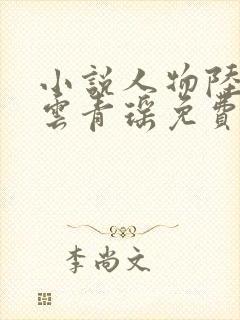 小說人物陸
雲青瑶免費
李尚文